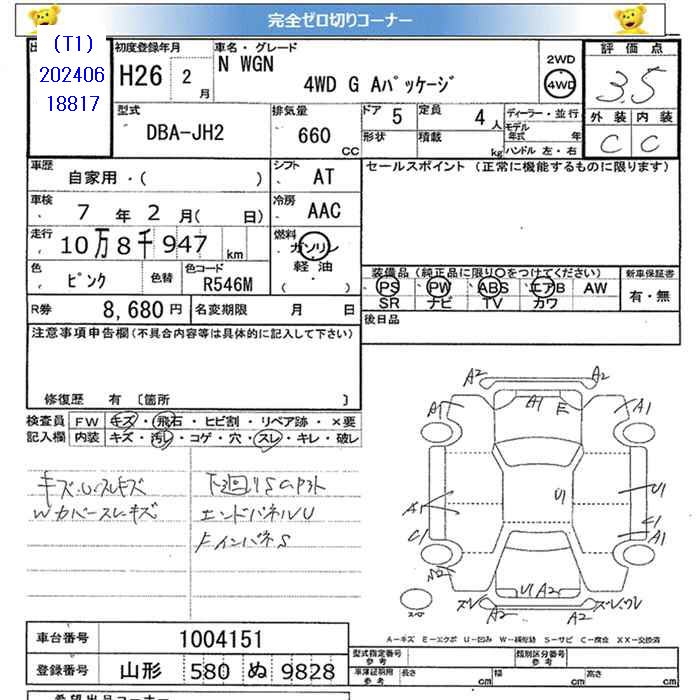 完全ゼロ切りコーナー
(T1)
202406
18817
初度登録年月
H26 2 月
車名・グレード
N WGN
4WD G Aパッケージ
2WD
4WD
評価点
3.5
外装 内装
C C
型式
DBA-JH2
排気量
660 CC
ドア 5
形状
定員 4 人
積載 kg
ディーラー・並行
モデル年式 年
ハンドル 左・右
車歴
自家用・( )
シフト
AT
セールスポイント (正常に機能するものに限ります)
車検
7 年 2 月( 日)
冷房
AAC
走行
10万8千947 km
燃料
ガソリン
軽油
( )
色
ピンク
色替
色コード
R546M
装備品(純正品に限り○をつけてください)
PS PW ABS エアB AW
SR ナビ TV カワ
新車保証書
有・無
R券 8,680円
名変期限 月 日
後日品
注意事項申告欄(不具合内容等は具体的に記入して下さい)
修復歴 有 〔箇所 〕
検査員記入欄
FW キズ・飛石・ヒビ割・リペア跡・×要
内装 キズ・汚れ・コゲ・穴・スレ・キレ・破レ
キズ・U・スレキズ
Wカバースレーキズ
下廻りS
エンドパネルU
A2 A2
A1 A1 E A1
A1 U1 U1
C1 C1
A1
U1 A2
A2 A2
車台番号 1004151
登録番号 山形 580 ぬ 9828
A-キズ E-エクボ U-凹み W-補修跡 S-サビ C-腐食 XX-交換済
型式指定番号 参考
類別区分番号 参考
車庫証明用 参考
長さ cm
幅 cm
高さ cm
希望出品コーナー